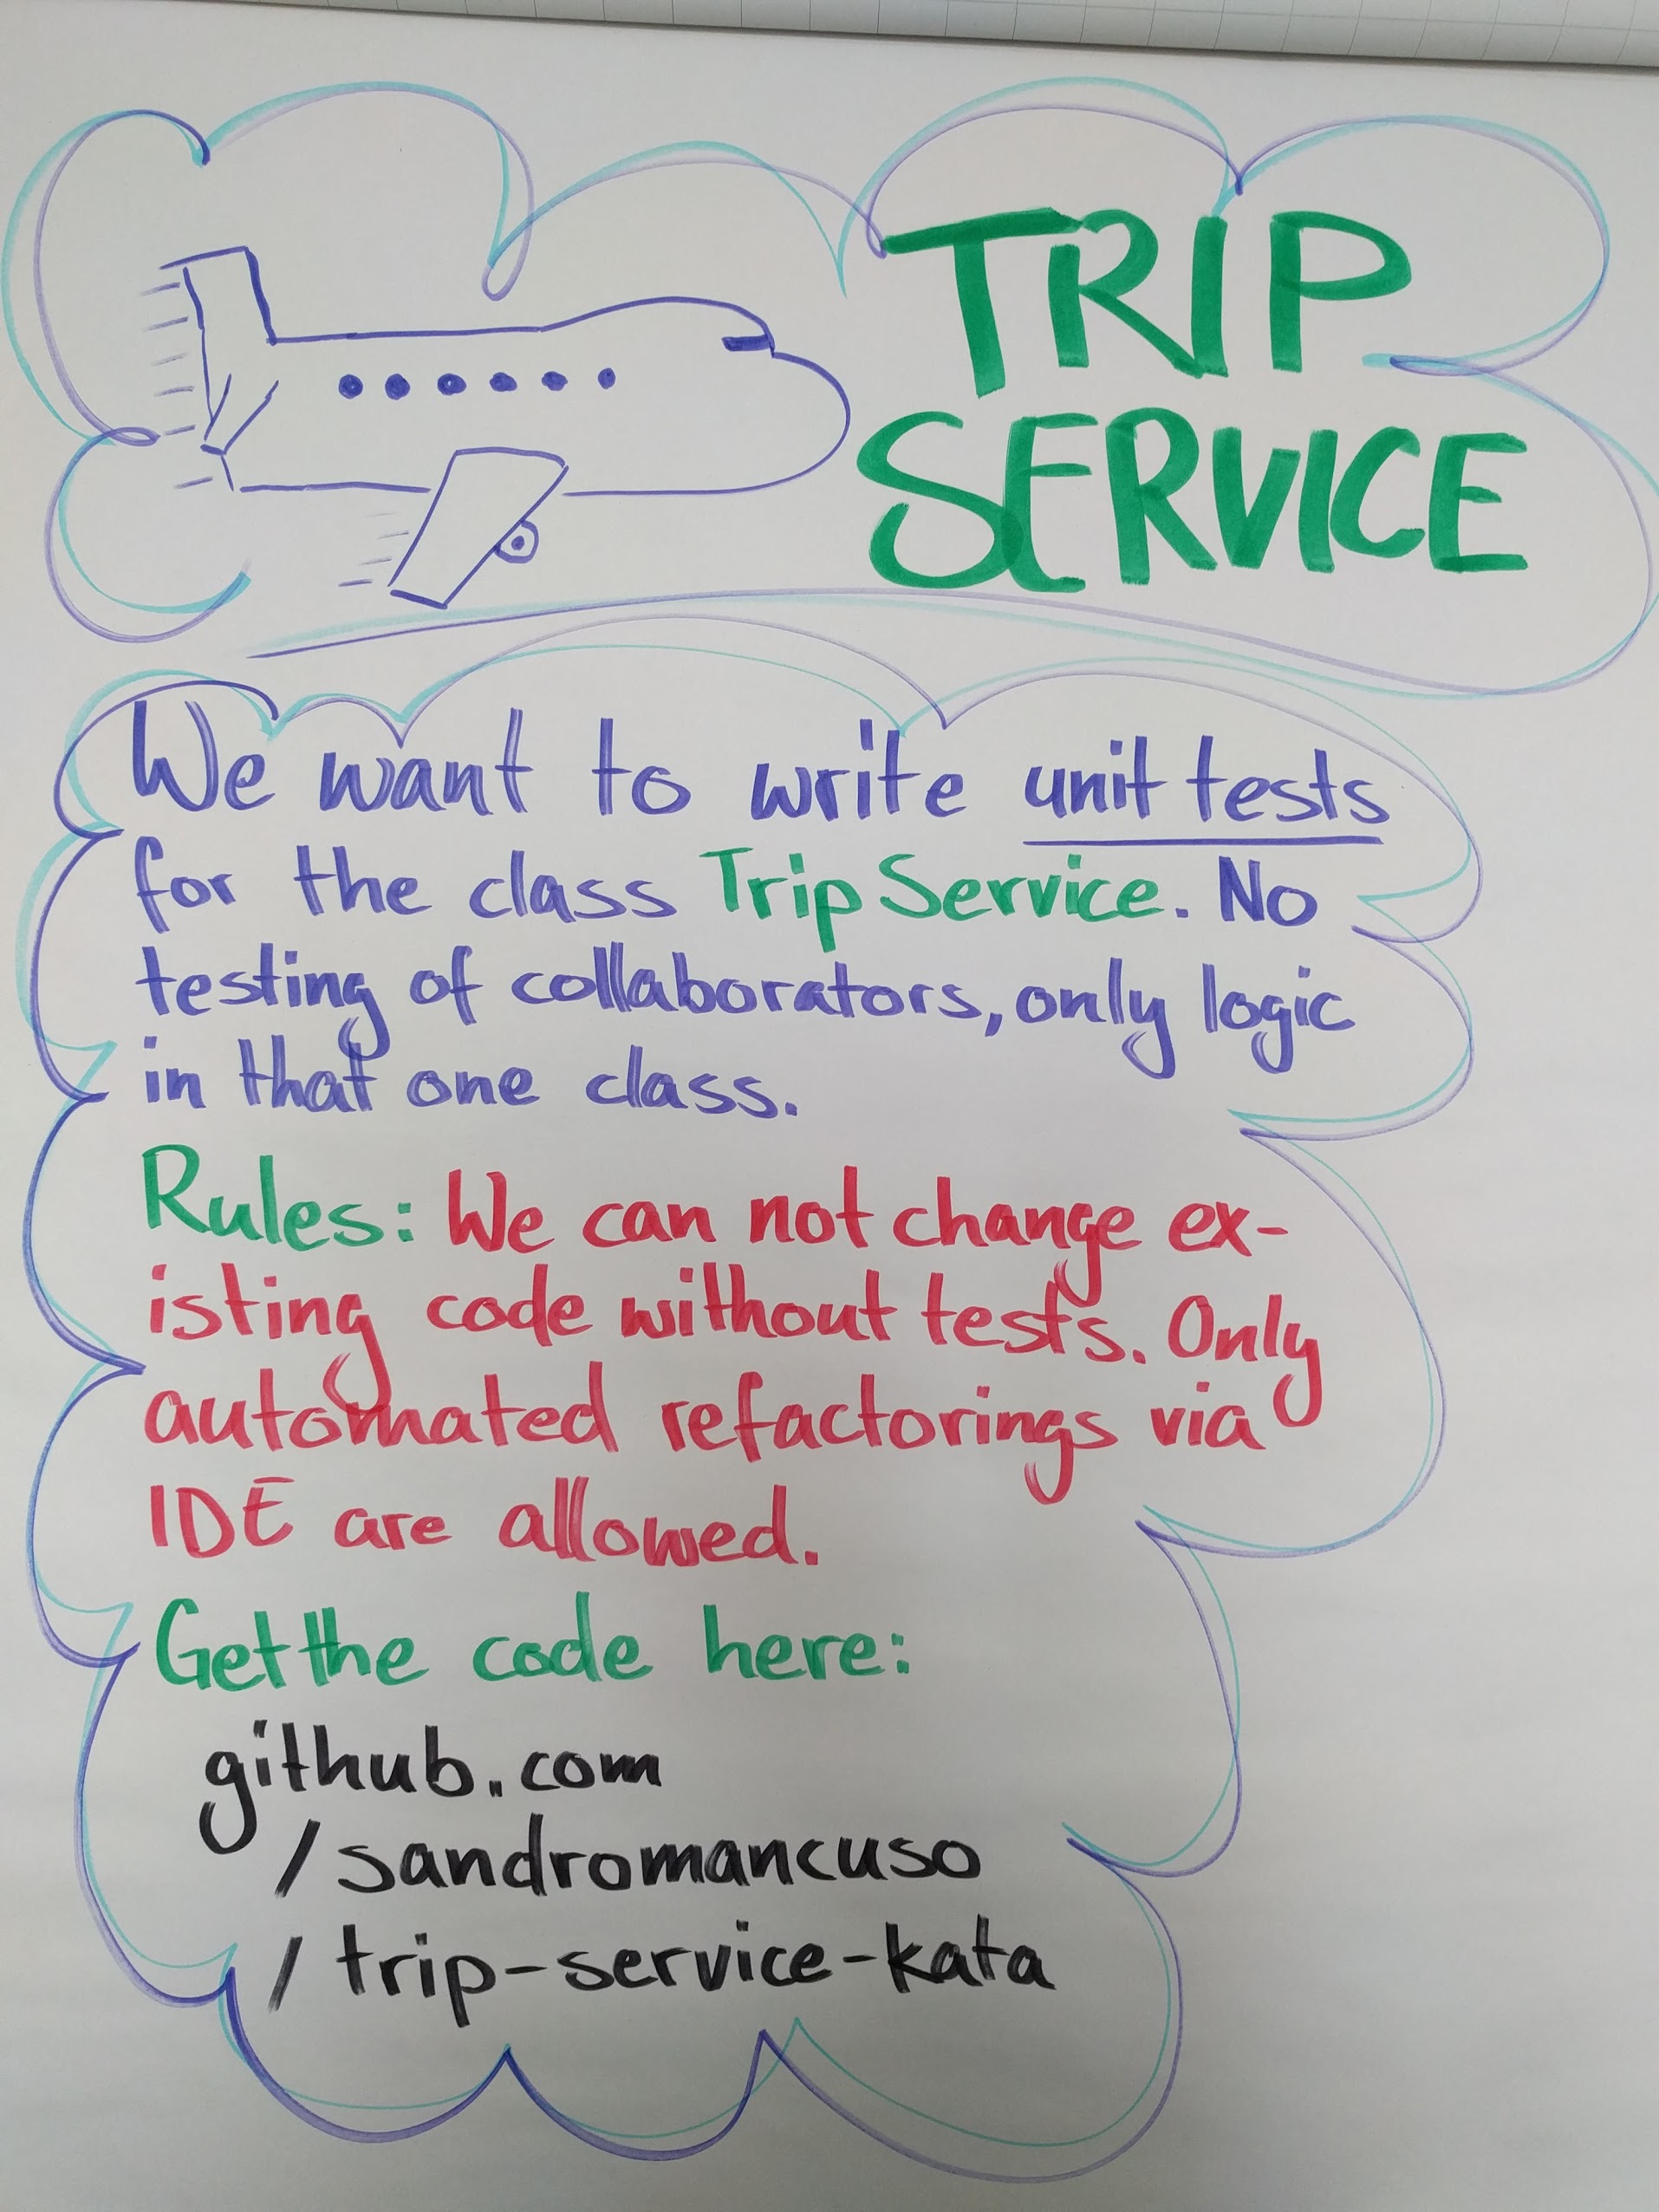 TRIP
SERVICE
We want to write unit tests
for the class TripService. No
testing of collaborators, only logic
in that one class.
Rules: We can not change ex-
isting code without tests. Only
automated refactorings via
IDE are allowed.
Get the code here:
github.com
/sandromancuso
/trip-service-kata